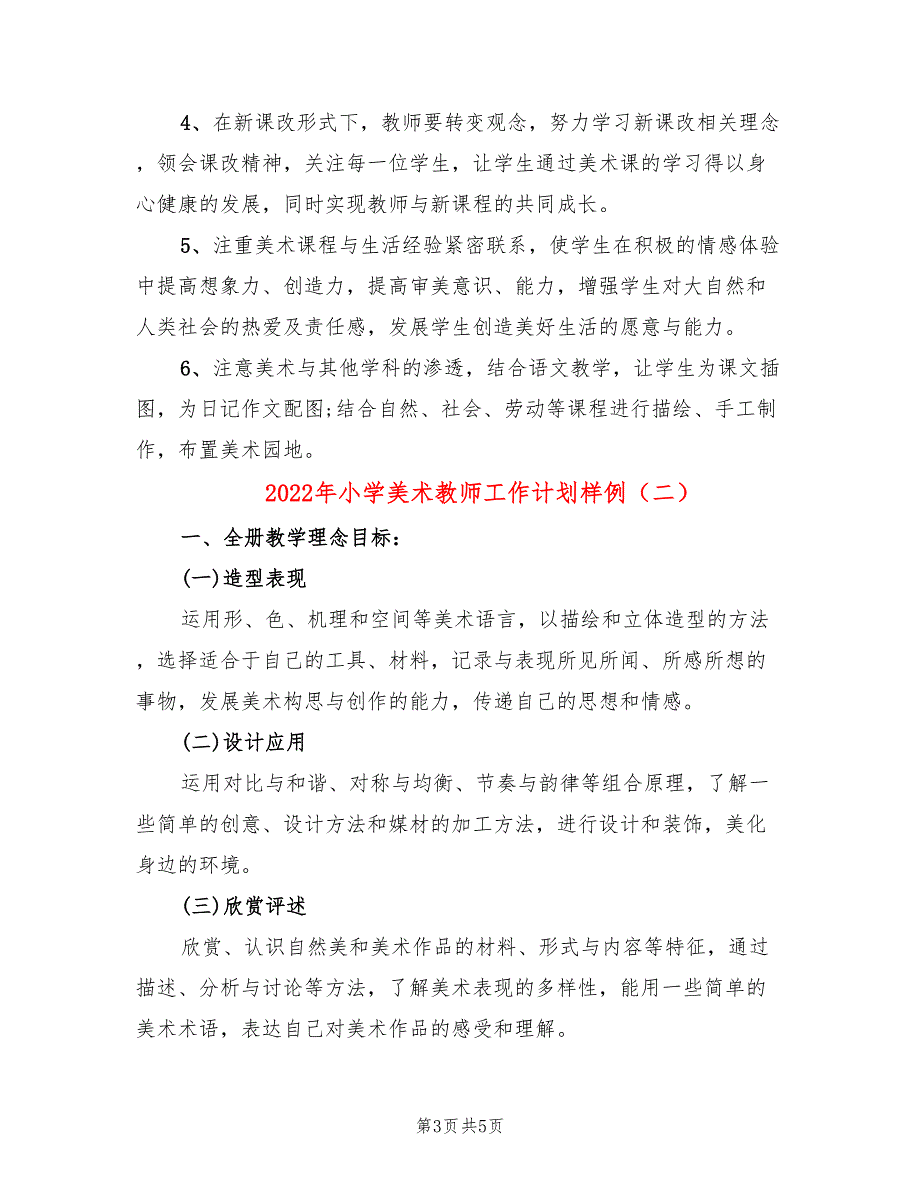 4、在新课改形式下，教师要转变观念，努力学习新课改相关理念
，领会课改精神，关注每一位学生，让学生通过美术课的学习得以身
心健康的发展，同时实现教师与新课程的共同成长。
5、注重美术课程与生活经验紧密联系，使学生在积极的情感体验
中提高想象力、创造力，提高审美意识、能力，增强学生对大自然和
人类社会的热爱及责任感，发展学生创造美好生活的愿意与能力。
6、注意美术与其他学科的渗透，结合语文教学，让学生为课文插
图，为日记作文配图;结合自然、社会、劳动等课程进行描绘、手工制
作，布置美术园地。
2022年小学美术教师工作计划样例（二）
一、全册教学理念目标：
(一)造型表现
运用形、色、机理和空间等美术语言，以描绘和立体造型的方法
，选择适合于自己的工具、材料，记录与表现所见所闻、所感所想的
事物，发展美术构思与创作的能力，传递自己的思想和情感。
(二)设计应用
运用对比与和谐、对称与均衡、节奏与韵律等组合原理，了解一
些简单的创意、设计方法和媒材的加工方法，进行设计和装饰，美化
身边的环境。
(三)欣赏评述
欣赏、认识自然美和美术作品的材料、形式与内容等特征，通过
描述、分析与讨论等方法，了解美术表现的多样性，能用一些简单的
美术术语，表达自己对美术作品的感受和理解。
第3页共5页